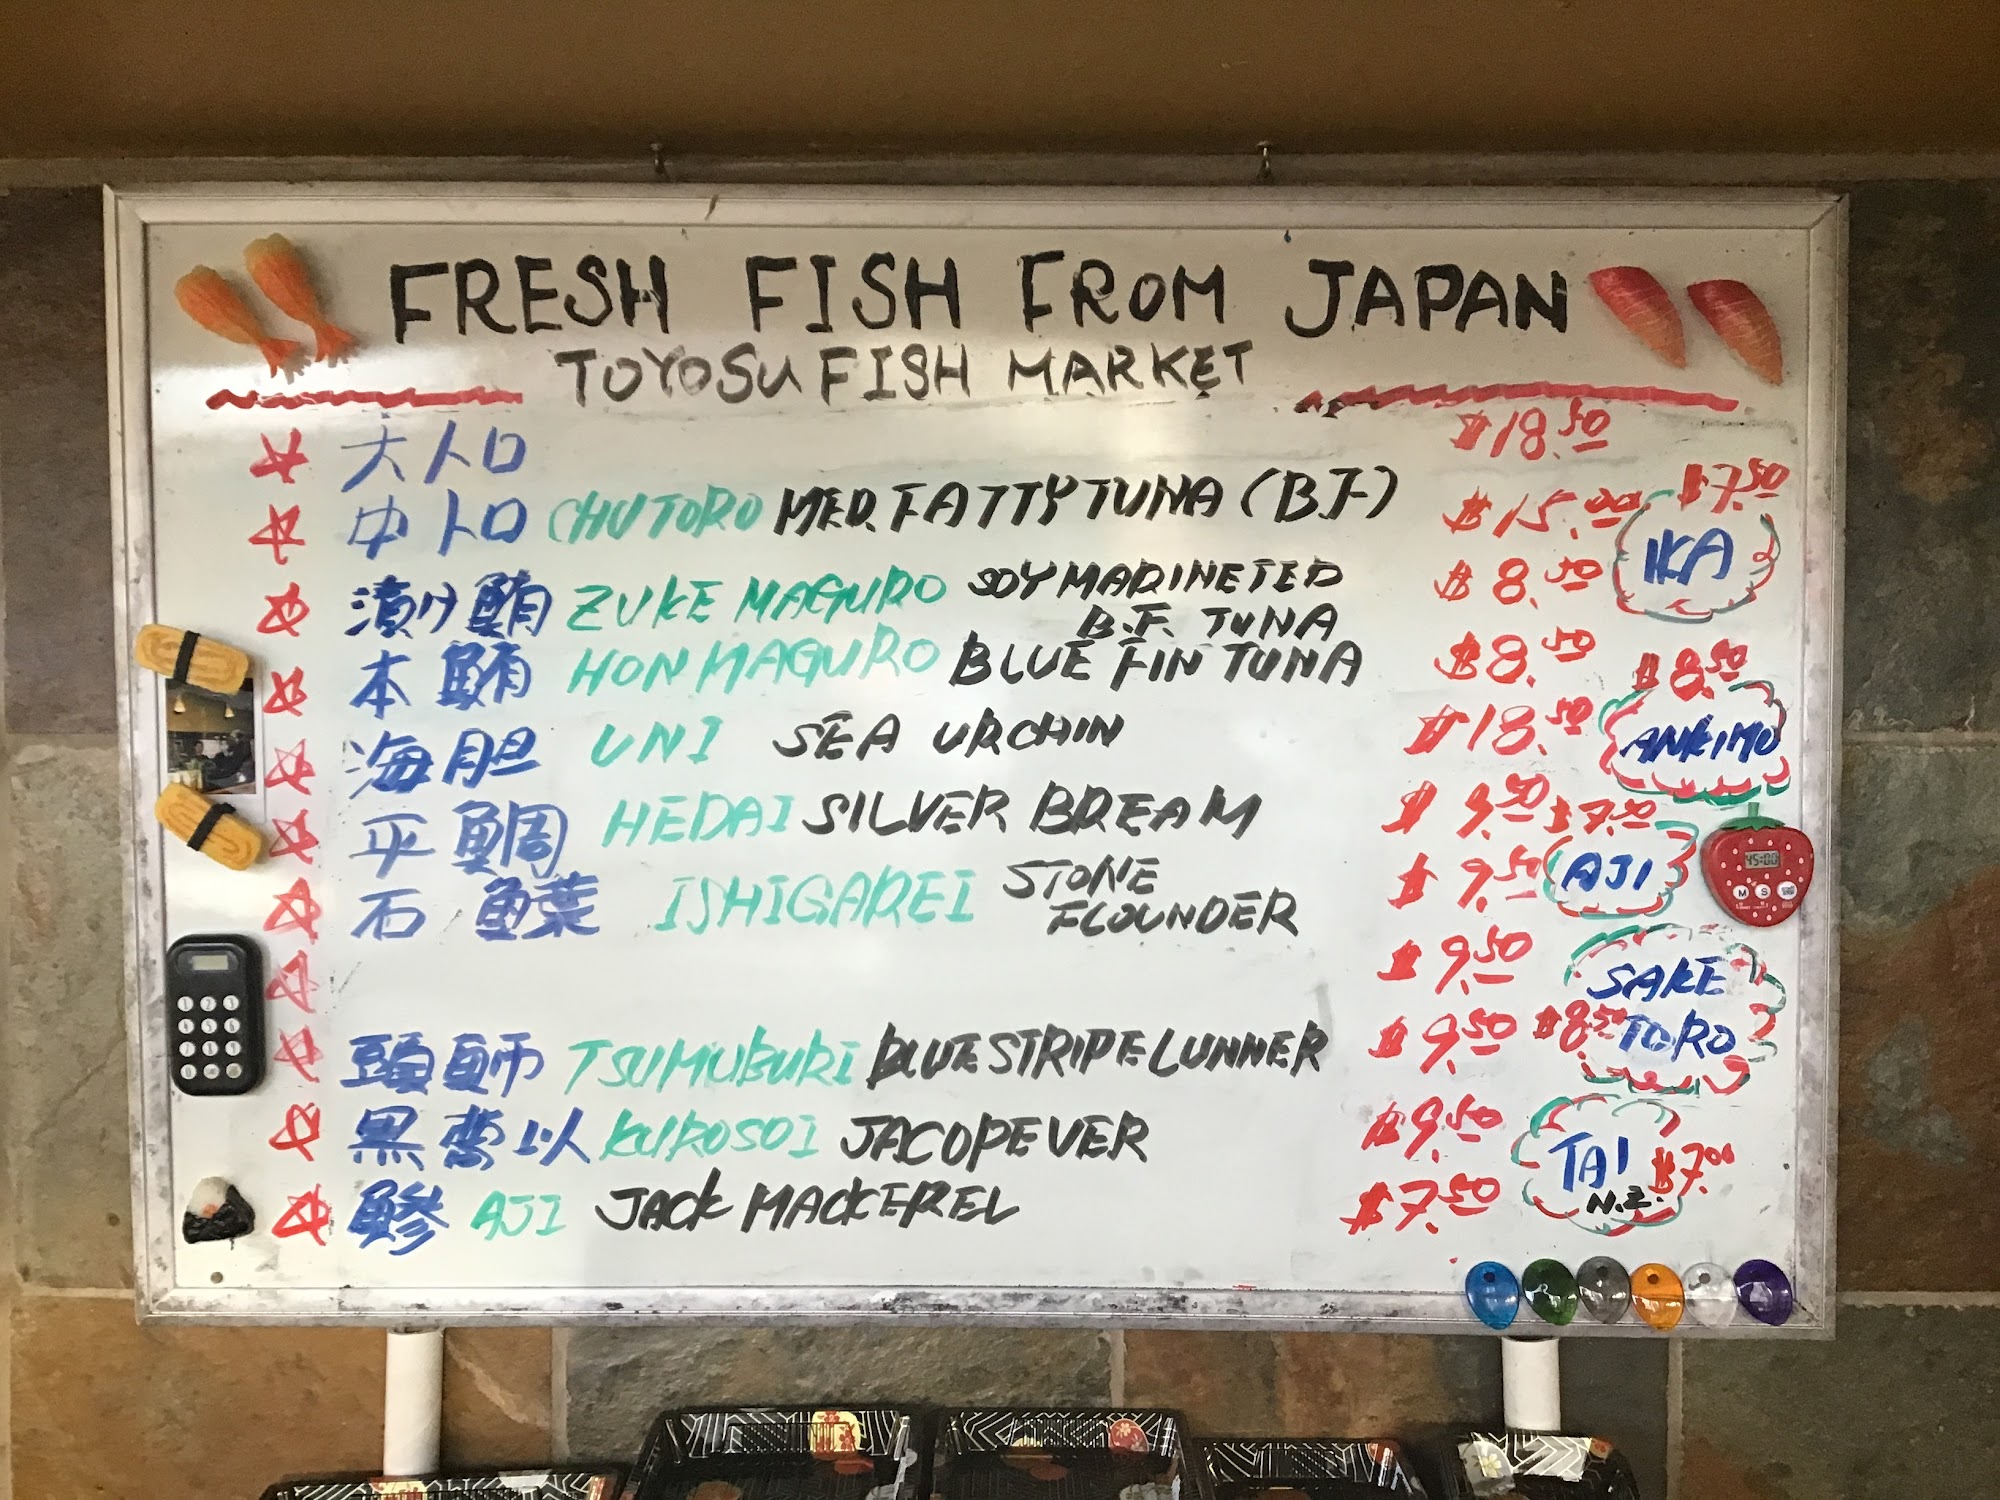 FRESH FISH FROM JAPAN
TOYOSU FISH MARKET
大トロ $18.50
中トロ CHUTORO MED. FATTY TUNA (B.F) $15.00
漬け鮪 ZUKE MAGURO SOY MARINETED B.F. TUNA $8.50
本鮪 HON MAGURO BLUE FIN TUNA $8.50
海胆 UNI SEA URCHIN $18.50
平鯛 HEDAI SILVER BREAM $9.50
石鰈 ISHIGAREI STONE FLOUNDER $9.50
$9.50
頭鰤 TSUMUBURI BLUE STRIPE LUNNER $9.50
黒曹以 KUROSOI JACOPEVER $9.50
鯵 AJI JACK MACKEREL $7.50
$7.50
IKA
$8.50
ANKIMO
$7.50
AJI
45:00
M S
SAKE
$8.50 TORO
TAI $7.00
N.Z.